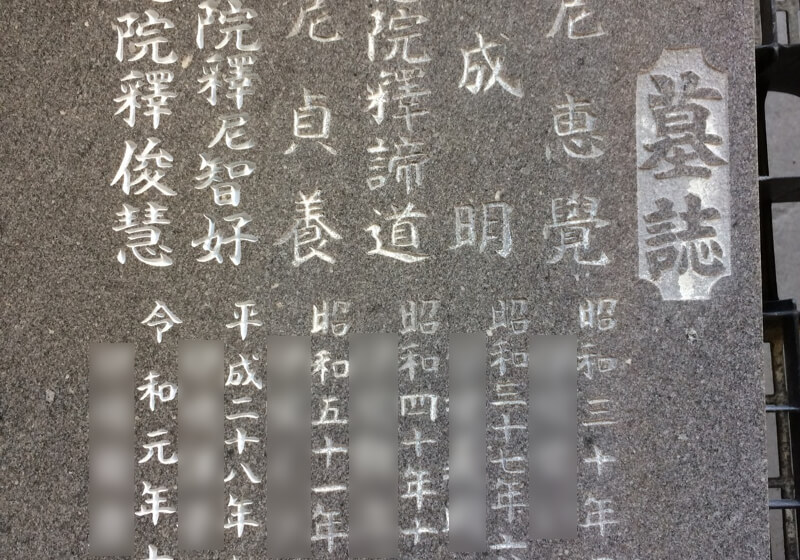 墓誌
尼恵覺 昭和三十年
成明 昭和三十七年
院釋諦道 昭和四十年十
尼貞養 昭和五十一年
院釋尼智好 平成二十八年
院釋俊慧 令和元年